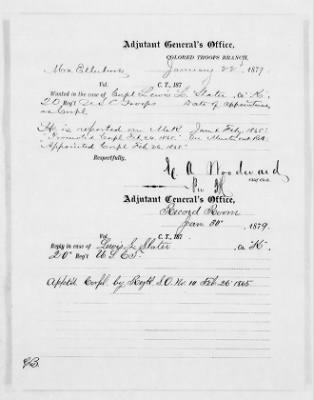 Adjutant General's Office,
COLORED TROOPS BRANCH,
January 22d 1879
Vol. C. T., 187
Wanted in the case of Corpl Lewis L. Slater, Co. "K"
20 Reg't U S C Troops Date of appointment
as Corpl
He is reported on M&R Jan & Feby 1865
"Promoted Corpl Feb 26, 1865."
Appointed Corpl Feb 26, 1865"
Respectfully,
A. Woodward
Adjutant General's Office,
Record Room
Jan 30" 1879.
Vol. C. T., 187
Reply in case of Lewis L. Slater Co. K.
20" Reg't U S C T.
Appt'd Corpl. by Regtl S.O. No. 10 Feb 26" 1865